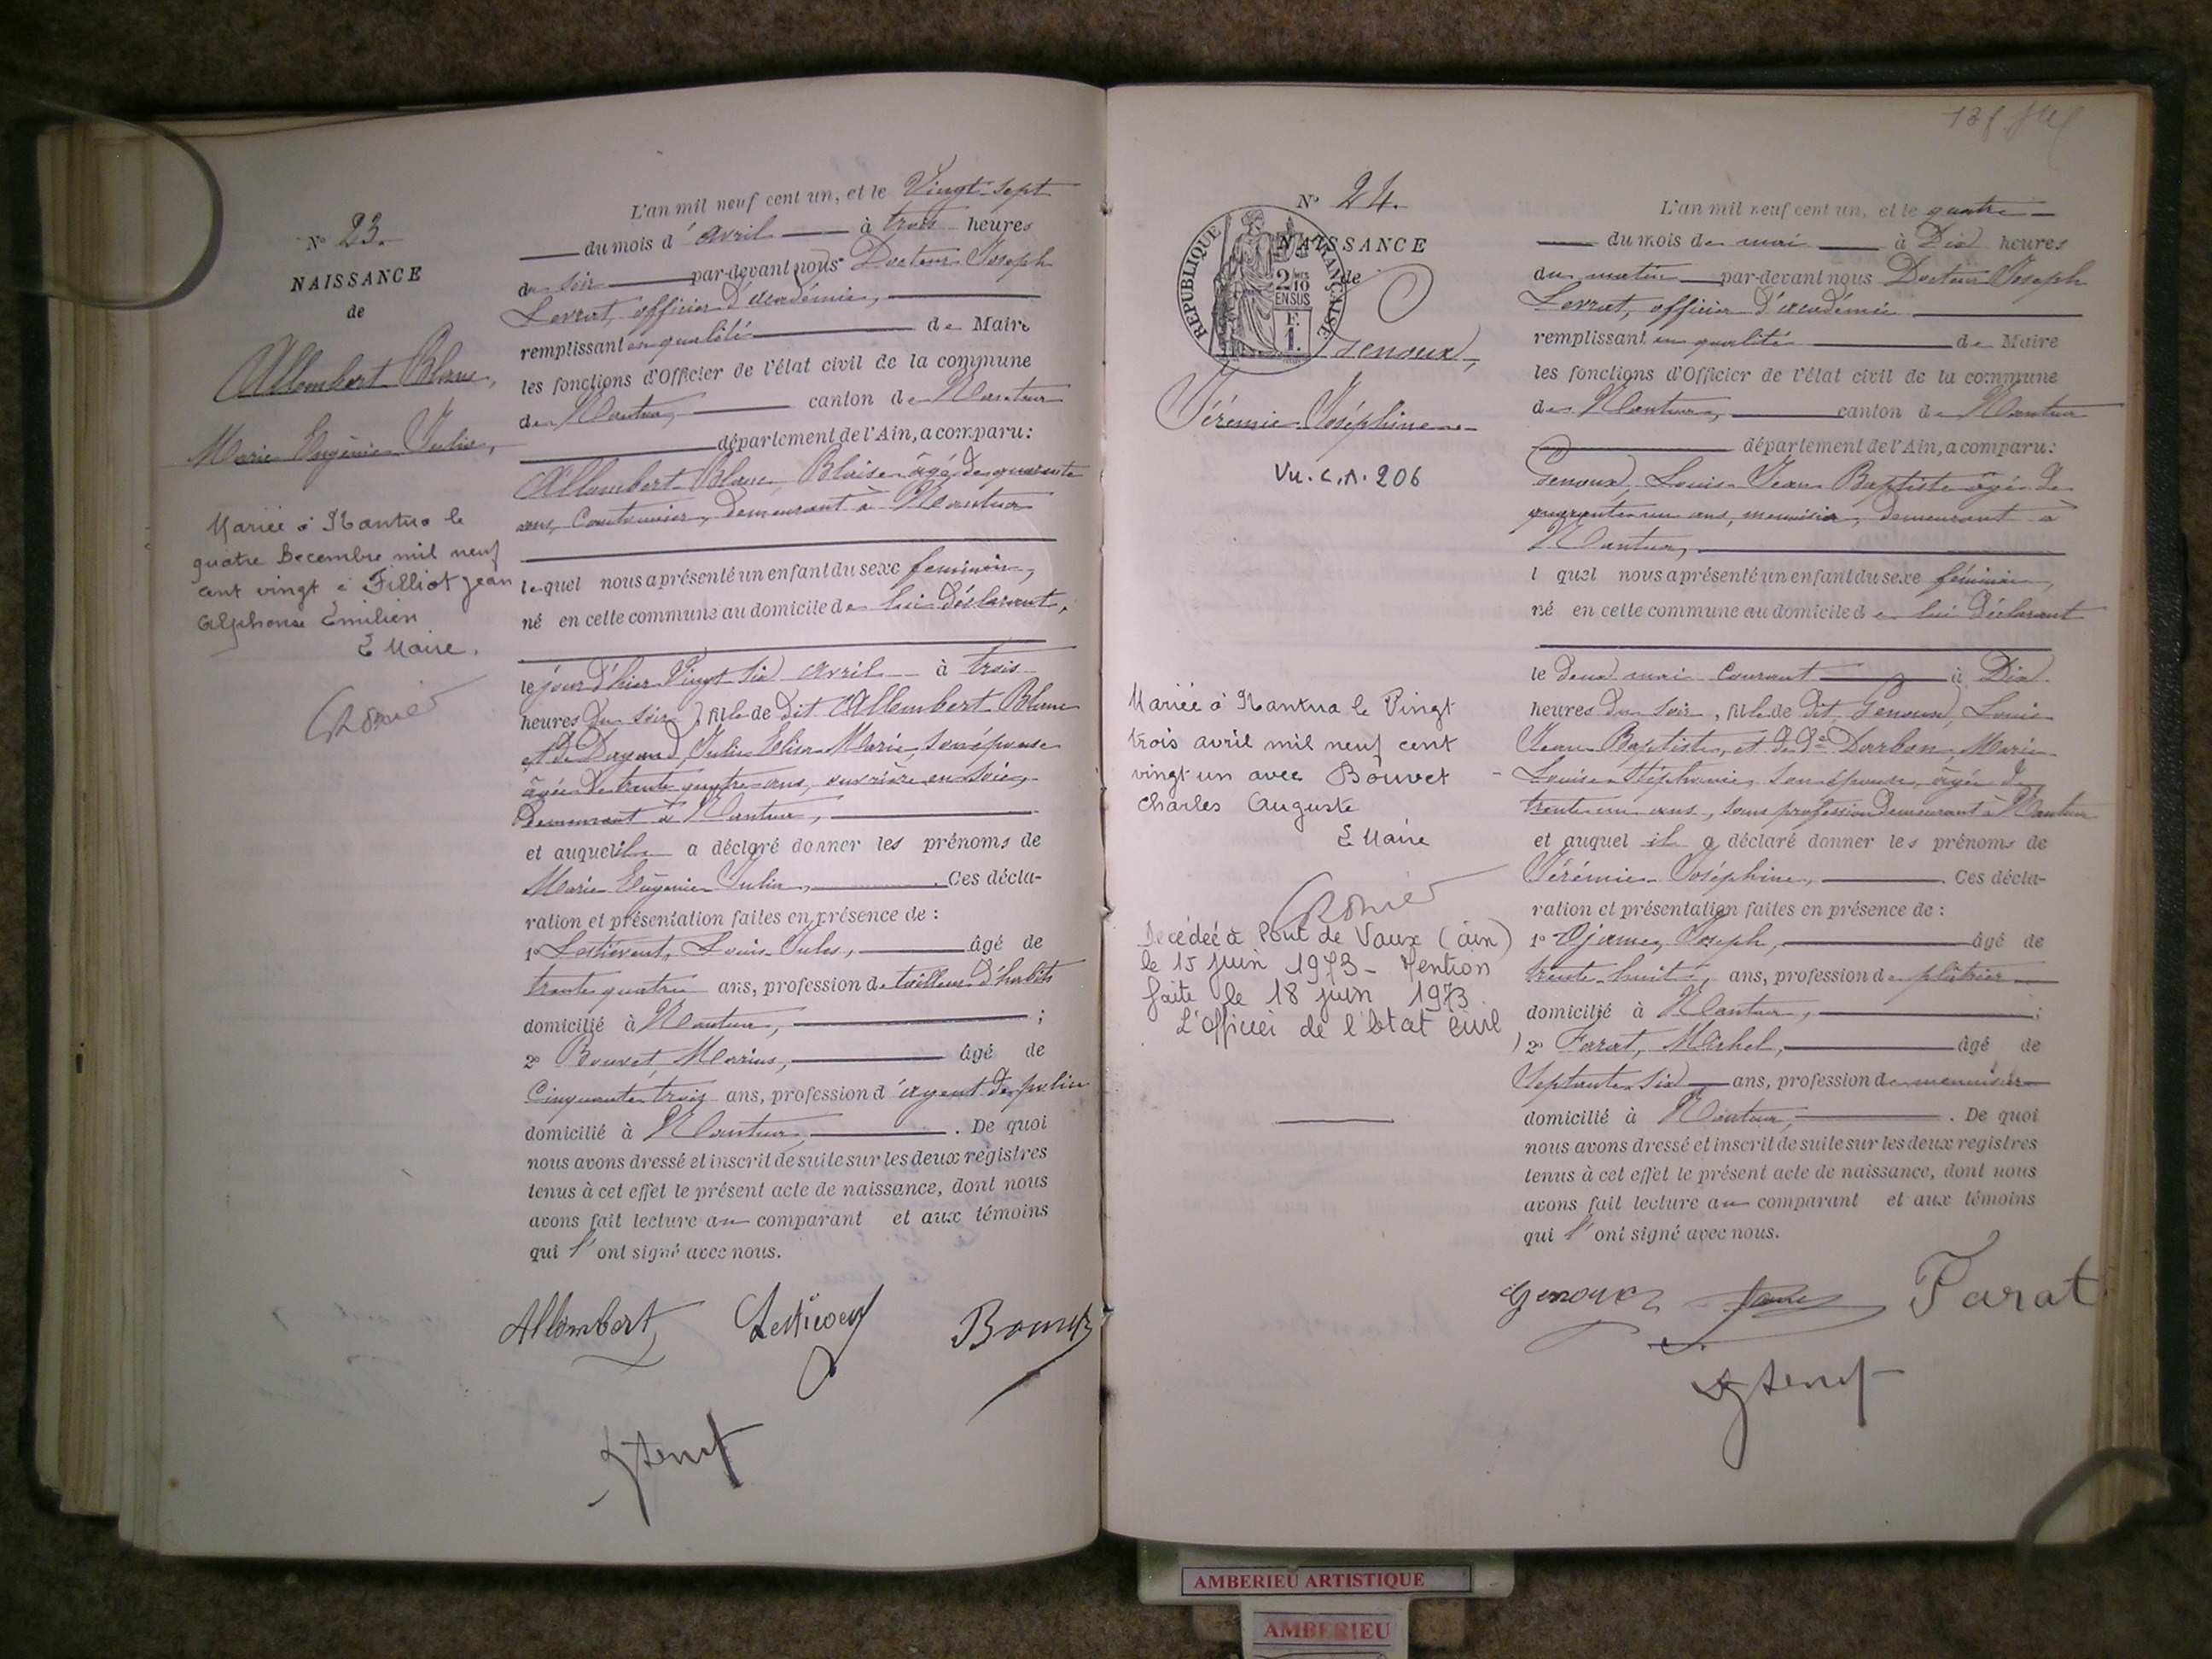 N° 23.
NAISSANCE
de
Allombert Blanc,
Marie Eugénie Julie,
Mariée à Nantua le
quatre Decembre mil neuf
cent vingt à Filliot Jean
Alphonse Emilien
L Maire.
L'an mil neuf cent un, et le Vingt-sept
du mois d'avril à trois heures
du soir par-devant nous Docteur Joseph
Levrat, officier d'académie,
remplissant en qualité de Maire
les fonctions d'Officier de l'état civil de la commune
de Nantua, canton de Nantua
département de l'Ain, a comparu :
Allombert Blanc, Blaise âgé de quarante
ans, Cantonnier, demeurant à Nantua
lequel nous a présenté un enfant du sexe féminin,
né en cette commune au domicile de lui déclarant,
le jour d'hier Vingt six avril à trois
heures du soir, fille de dit Allombert Blanc
et de Julie Elisa Marie, son épouse
âgée de trente quatre ans, ouvrière en soie,
demeurant à Nantua,
et auquel il a déclaré donner les prénoms de
Marie Eugénie Julie, . Ces décla-
ration et présentation faites en présence de :
1° Lestievent, Louis Jules, âgé de
trente quatre ans, profession de tailleur d'habits
domicilié à Nantua, ;
2° Bouvet, Marius, âgé de
Cinquante trois ans, profession d'agent de police
domicilié à Nantua, . De quoi
nous avons dressé et inscrit de suite sur les deux registres
tenus à cet effet le présent acte de naissance, dont nous
avons fait lecture au comparant et aux témoins
qui l'ont signé avec nous.
Allombert Bouvet
N° 24.
NAISSANCE
de
REPUBLIQUE FRANÇAISE
2 MES
10
EN SUS
F.
1.
Genoux,
Jérémie Joséphine
Vu. C.N. 206
Mariée à Nantua le Vingt
trois avril mil neuf cent
vingt un avec Bouvet
Charles Auguste
L Maire
Decedeé à Pont de Vaux (ain)
le 15 juin 1973 - Mention
faite le 18 juin 1973
L'Officier de l'Etat Civil
L'an mil neuf cent un, et le quatre
du mois de mai à Dix heures
du matin par-devant nous Docteur Joseph
Levrat, officier d'académie
remplissant en qualité de Maire
les fonctions d'Officier de l'état civil de la commune
de Nantua, canton de Nantua
département de l'Ain, a comparu :
Genoux, Louis Jean Baptiste âgé de
quarante un ans, menuisier, demeurant à
Nantua,
l quel nous a présenté un enfant du sexe féminin,
né en cette commune au domicile de lui déclarant
le Deux mai Courant à Dix
heures du soir, fille de dit Genoux, Louis
Jean Baptiste, et de De Darbon, Marie
Louise Stéphanie, son épouse, âgée de
trente un ans, sans profession demeurant à Nantua
et auquel il a déclaré donner les prénoms de
Jérémie Joséphine, . Ces décla-
ration et présentation faites en présence de :
1° Joseph, âgé de
trente huit, ans, profession de plâtrier
domicilié à Nantua, ;
2° Farat, Michel, âgé de
Septante six ans, profession de menuisier
domicilié à Nantua, . De quoi
nous avons dressé et inscrit de suite sur les deux registres
tenus à cet effet le présent acte de naissance, dont nous
avons fait lecture au comparant et aux témoins
qui l'ont signé avec nous.
Genoux Farat
AMBERIEU ARTISTIQUE
AMBERIEU